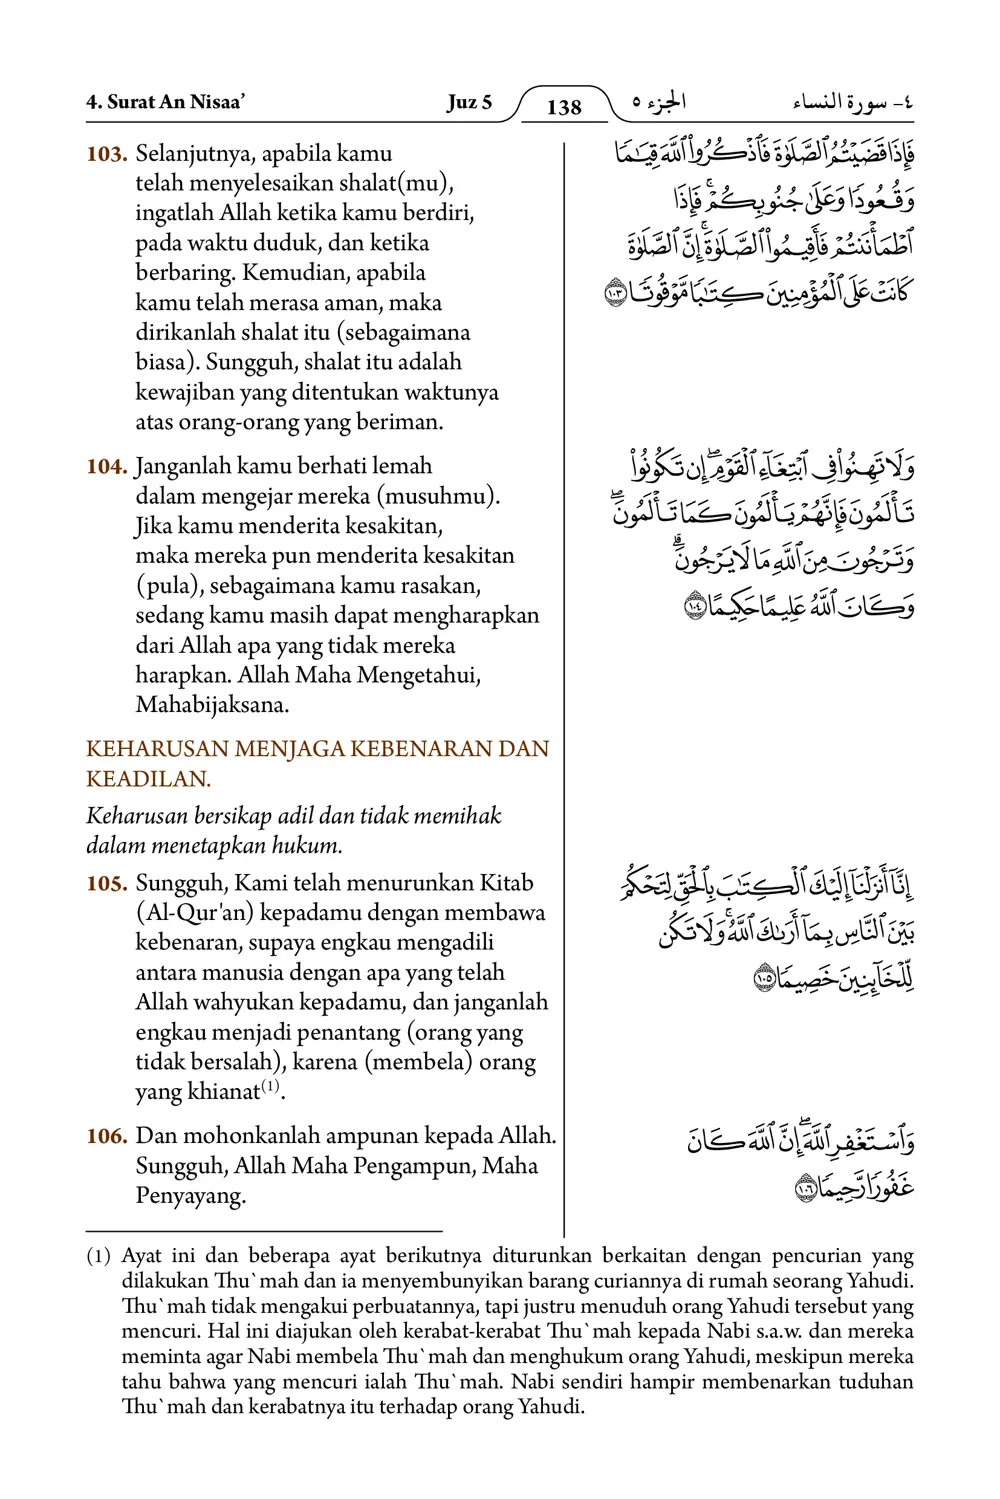 4. Surat An Nisaa’ Juz 5 138 الجزء ٥ ٤- سورة النساء
103. Selanjutnya, apabila kamu
telah menyelesaikan shalat(mu),
ingatlah Allah ketika kamu berdiri,
pada waktu duduk, dan ketika
berbaring. Kemudian, apabila
kamu telah merasa aman, maka
dirikanlah shalat itu (sebagaimana
biasa). Sungguh, shalat itu adalah
kewajiban yang ditentukan waktunya
atas orang-orang yang beriman.
فَإِذَا قَضَيْتُمُ ٱلصَّلَوٰةَ فَٱذْكُرُوا۟ ٱللَّهَ قِيَـٰمًا
وَقُعُودًا وَعَلَىٰ جُنُوبِكُمْ ۚ فَإِذَا
ٱطْمَأْنَنتُمْ فَأَقِيمُوا۟ ٱلصَّلَوٰةَ ۚ إِنَّ ٱلصَّلَوٰةَ
كَانَتْ عَلَى ٱلْمُؤْمِنِينَ كِتَـٰبًا مَّوْقُوتًا ١٠٣
104. Janganlah kamu berhati lemah
dalam mengejar mereka (musuhmu).
Jika kamu menderita kesakitan,
maka mereka pun menderita kesakitan
(pula), sebagaimana kamu rasakan,
sedang kamu masih dapat mengharapkan
dari Allah apa yang tidak mereka
harapkan. Allah Maha Mengetahui,
Mahabijaksana.
وَلَا تَهِنُوا۟ فِى ٱبْتِغَآءِ ٱلْقَوْمِ ۖ إِن تَكُونُوا۟
تَأْلَمُونَ فَإِنَّهُمْ يَأْلَمُونَ كَمَا تَأْلَمُونَ ۖ
وَتَرْجُونَ مِنَ ٱللَّهِ مَا لَا يَرْجُونَ ۗ
وَكَانَ ٱللَّهُ عَلِيمًا حَكِيمًا ١٠٤
KEHARUSAN MENJAGA KEBENARAN DAN
KEADILAN.
Keharusan bersikap adil dan tidak memihak
dalam menetapkan hukum.
105. Sungguh, Kami telah menurunkan Kitab
(Al-Qur'an) kepadamu dengan membawa
kebenaran, supaya engkau mengadili
antara manusia dengan apa yang telah
Allah wahyukan kepadamu, dan janganlah
engkau menjadi penantang (orang yang
tidak bersalah), karena (membela) orang
yang khianat(1).
إِنَّآ أَنزَلْنَآ إِلَيْكَ ٱلْكِتَـٰبَ بِٱلْحَقِّ لِتَحْكُمَ
بَيْنَ ٱلنَّاسِ بِمَآ أَرَىٰكَ ٱللَّهُ ۚ وَلَا تَكُن
لِّلْخَآئِنِينَ خَصِيمًا ١٠٥
106. Dan mohonkanlah ampunan kepada Allah.
Sungguh, Allah Maha Pengampun, Maha
Penyayang.
وَٱسْتَغْفِرِ ٱللَّهَ ۖ إِنَّ ٱللَّهَ كَانَ
غَفُورًا رَّحِيمًا ١٠٦
(1) Ayat ini dan beberapa ayat berikutnya diturunkan berkaitan dengan pencurian yang
dilakukan Thu`mah dan ia menyembunyikan barang curiannya di rumah seorang Yahudi.
Thu`mah tidak mengakui perbuatannya, tapi justru menuduh orang Yahudi tersebut yang
mencuri. Hal ini diajukan oleh kerabat-kerabat Thu`mah kepada Nabi s.a.w. dan mereka
meminta agar Nabi membela Thu`mah dan menghukum orang Yahudi, meskipun mereka
tahu bahwa yang mencuri ialah Thu`mah. Nabi sendiri hampir membenarkan tuduhan
Thu`mah dan kerabatnya itu terhadap orang Yahudi.